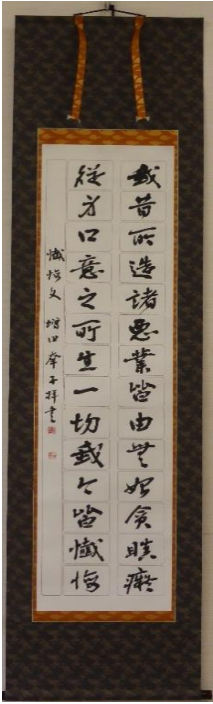 我昔所造諸悪業皆由無始貪瞋癡
従身口意之所生一切我今皆懺悔
懺悔文 子拝書